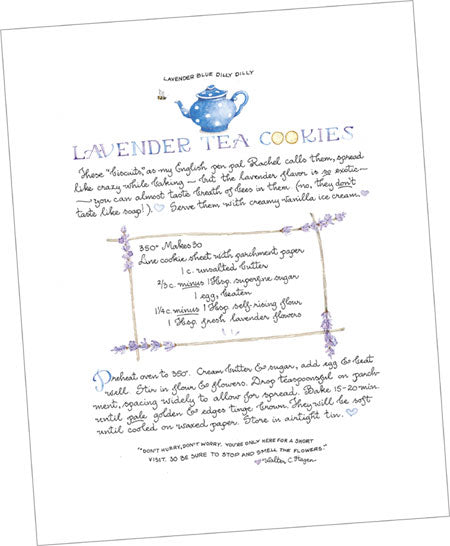 LAVENDER BLUE DILLY DILLY
LAVENDER TEA COOKIES
These "biscuits," as my English pen pal Rachel calls them, spread
like crazy while baking — but the lavender flavor is so exotic—
—you can almost taste breath of bees in them (no, they don't
taste like soap!). Serve them with creamy vanilla ice cream.
350° Makes 30
Line cookie sheet with parchment paper
1 c. unsalted butter
2/3 c. minus 1 Tbsp. superfine sugar
1 egg, beaten
1 1/4 c. minus 1 Tbsp. self-rising flour
1 Tbsp. fresh lavender flowers
Preheat oven to 350°. Cream butter & sugar, add egg & beat
well. Stir in flour & flowers. Drop teaspoonsful on parch-
ment, spacing widely to allow for spread. Bake 15-20 min.
until pale golden & edges tinge brown. They will be soft
until cooled on waxed paper. Store in airtight tin.
"DON'T HURRY, DON'T WORRY. YOU'RE ONLY HERE FOR A SHORT
VISIT. SO BE SURE TO STOP AND SMELL THE FLOWERS."
Walter C. Hagen